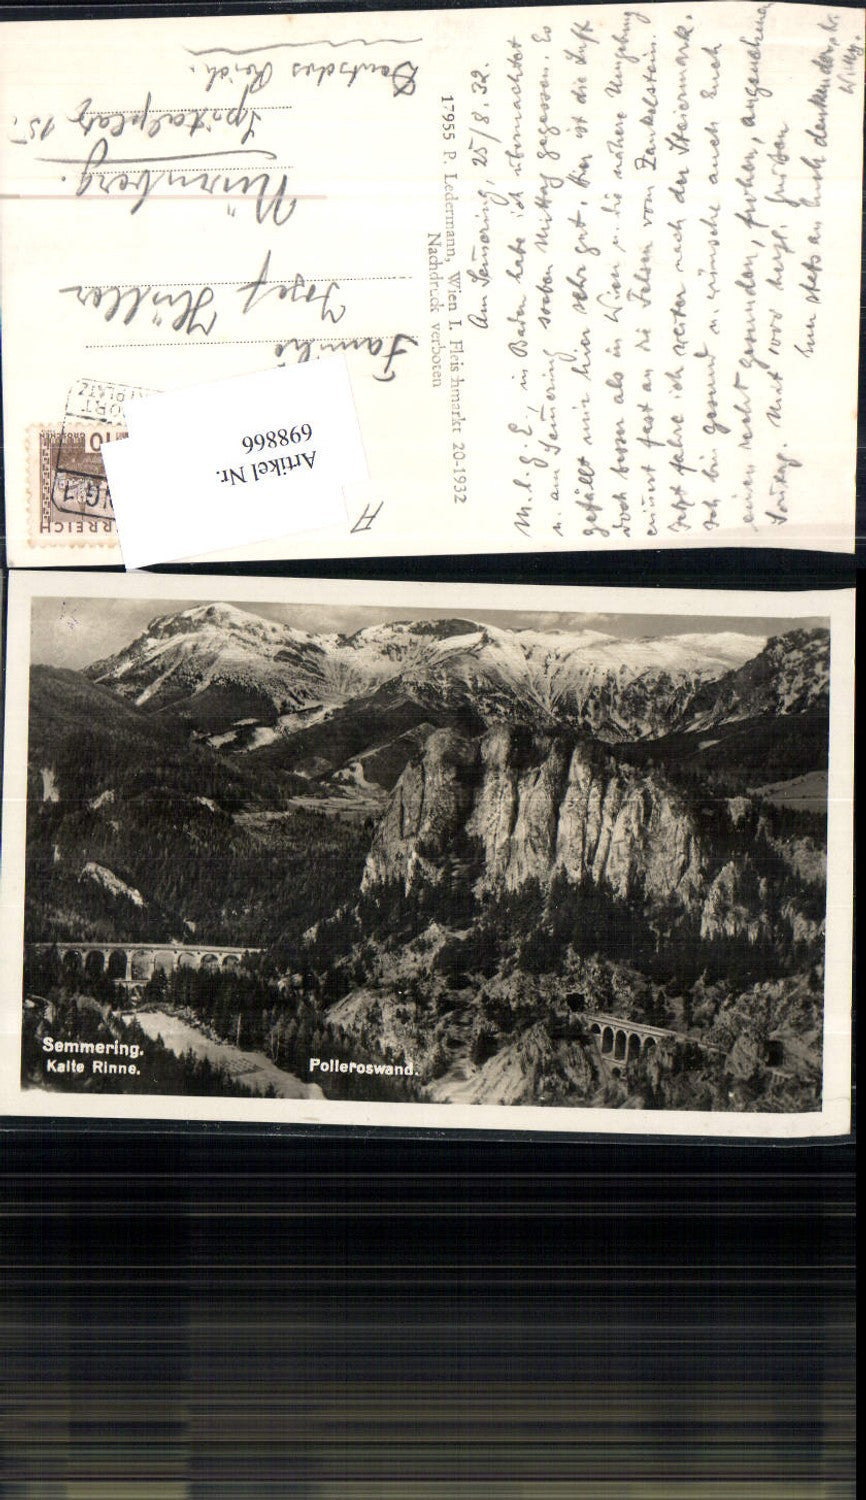 Am Semmering, 25/8.32.
M. l. g. E! in Baden habe ich übernachtet
u. am Semmering soeben Mittag gegessen. Es
gefällt mir hier sehr gut, hier ist die Luft
doch besser als in Wien u. die nähere Umgebung
erinnert fast an die Felsen vom
Jetzt fahre ich weiter nach der Steiermark.
Ich bin gesund u. wünsche auch Euch
einen recht gesunden, frohen, angenehmen
Sonntag. Mit 1000 herzl. Grüßen
Euer stets an Euch denkender
Willy.
17955 P. Ledermann, Wien I. Fleischmarkt 20-1932
Nachdruck verboten
Familie
Josef Hüller
Nürnberg.
Spitalplatz 15.
Deutsches Reich.
Artikel Nr.
698866
10
GROSCHEN
ERREICH
Semmering.
Kalte Rinne.
Polleroswand.